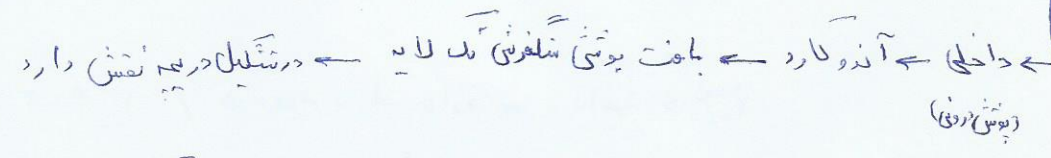 ← داخلی ← آندوکارد ← بافت پوششی سنگفرشی تک لایه ← در تشکیل دریچه نقش دارد
(پوشش درونی)